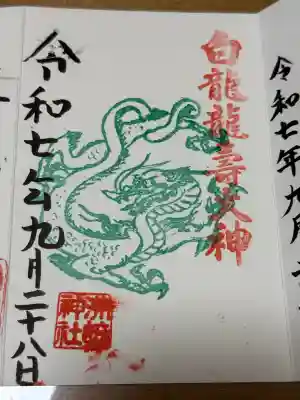 令和七年九月
白龍龍壽大神
洲崎
神社
令和七年九月二十八日